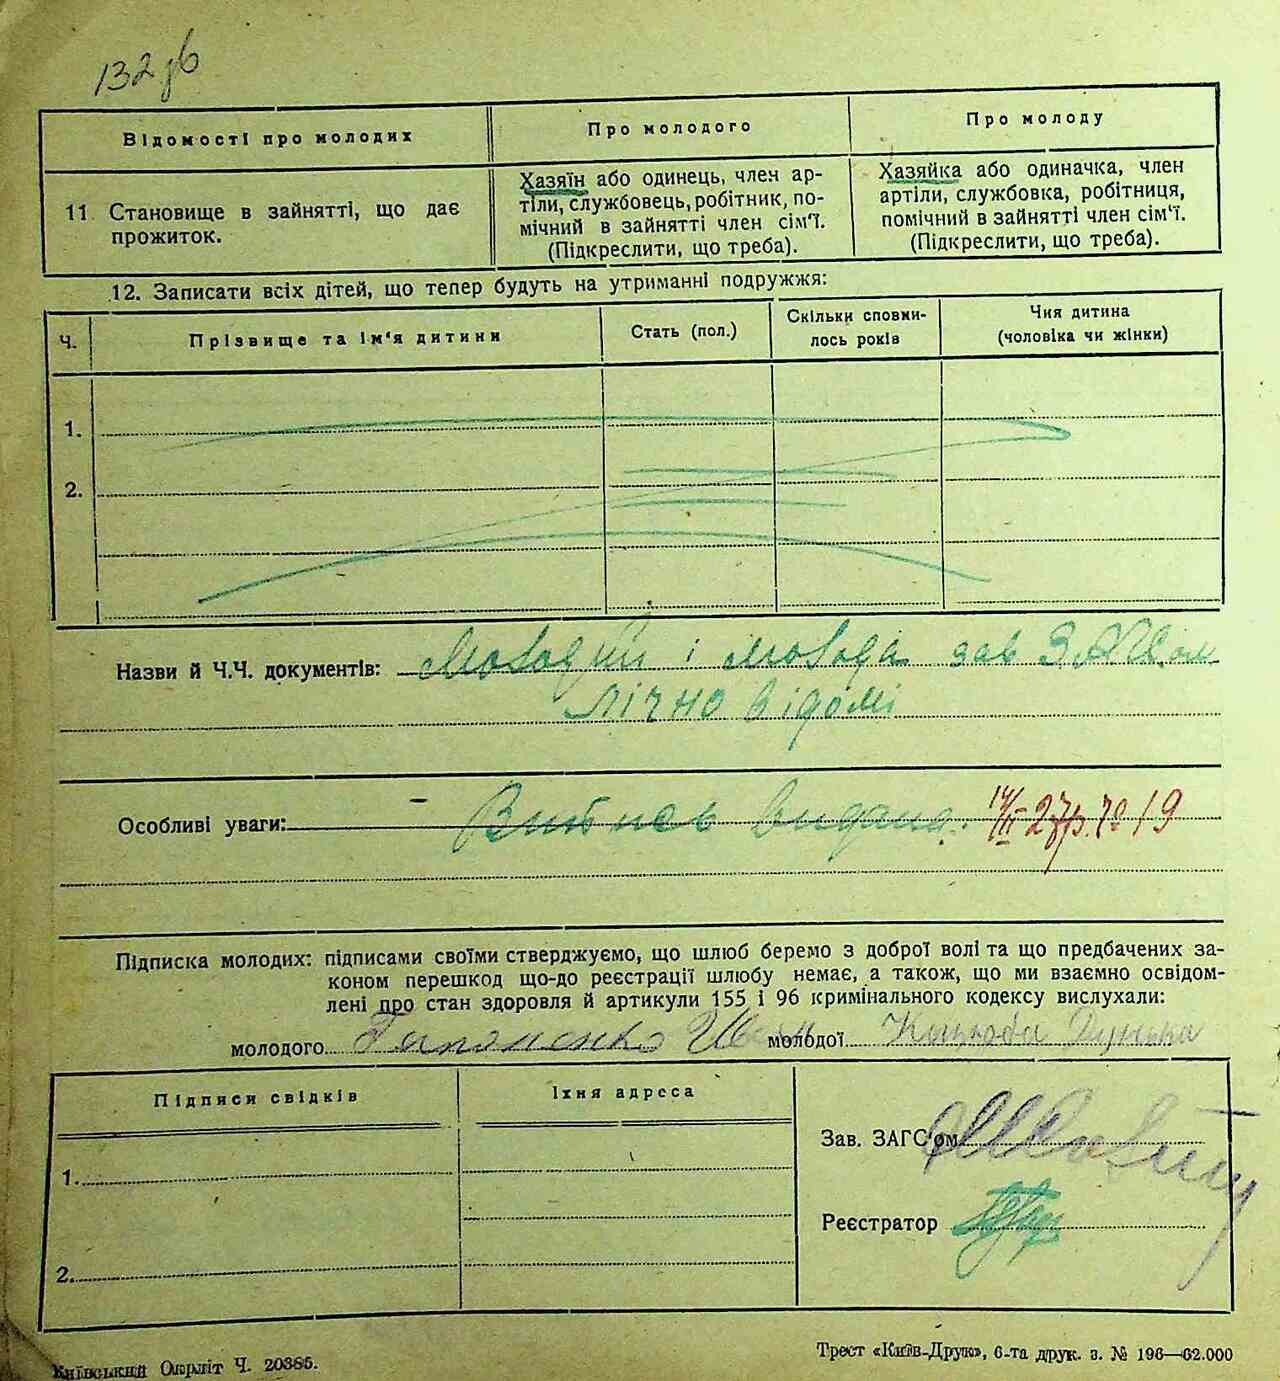 132 зв
Відомості про молодих
Про молодого
Про молоду
11 Становище в зайнятті, що дає
прожиток.
Хазяїн або одинець, член ар-
тіли, службовець, робітник, по-
мічний в зайнятті член сім'ї.
(Підкреслити, що треба).
Хазяйка або одиначка, член
артіли, службовка, робітниця,
помічний в зайнятті член сім'ї.
(Підкреслити, що треба).
12. Записати всіх дітей, що тепер будуть на утриманні подружжя:
Ч.
Прізвище та ім'я дитини
Стать (пол.)
Скільки сповни-
лось років
Чия дитина
(чоловіка чи жінки)
1.
2.
Назви й Ч.Ч. документів: Молодий і молода зав ЗАГС'ом
лічно відомі
Особливі уваги: Витись видана. 14/III 27р. № 19
Підписка молодих: підписами своїми стверджуємо, що шлюб беремо з доброї волі та що предбачених за-
коном перешкод що-до реєстрації шлюбу немає, а також, що ми взаємно освідом-
лені про стан здоровля й артикули 155 і 96 кримінального кодексу вислухали:
молодого Гапоненко Иван молодої Коцюба
Підписи свідків
Їхня адреса
1.
2.
Зав. ЗАГС'ом
Реєстратор
Київський Окрліт Ч. 20385.
Трест «Київ-Друк», 6-та друк. з. № 196—62.000